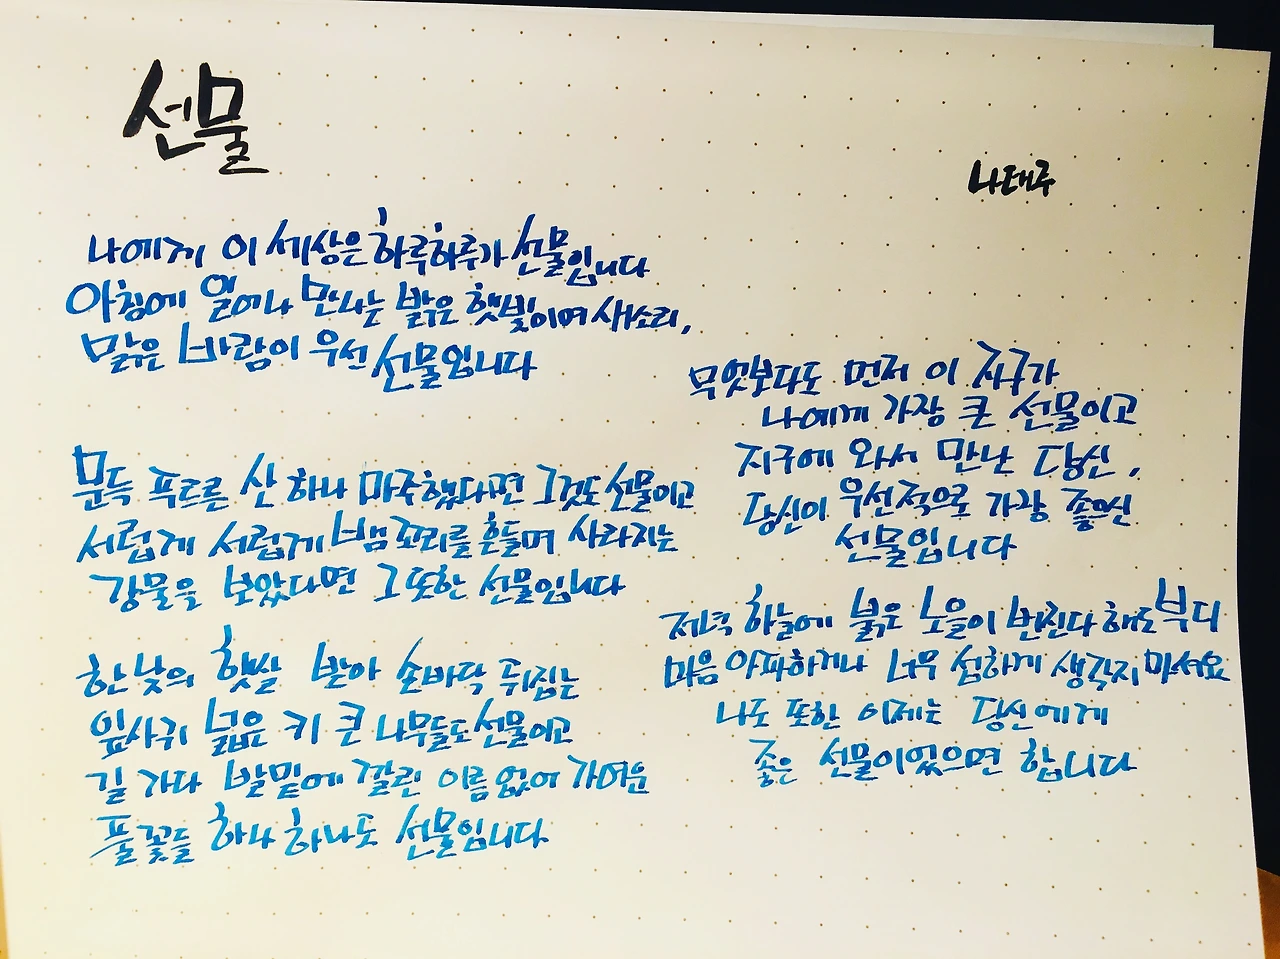 선물
나태주
나에게 이 세상은 하루하루가 선물입니다
아침에 일어나 만나는 밝은 햇빛이며 새소리,
맑은 바람이 우선 선물입니다
문득 푸르른 산 하나 마주했다면 그것도 선물이고
서럽게 서럽게 뱀 꼬리를 흔들며 사라지는
강물을 보았다면 그 또한 선물입니다
한낮의 햇살 받아 손바닥 뒤집는
잎사귀 넓은 키 큰 나무들도 선물이고
길 가다 발밑에 깔린 이름 없어 가여운
풀꽃들 하나 하나도 선물입니다
무엇보다도 먼저 이 지구가
나에게 가장 큰 선물이고
지구에 와서 만난 당신,
당신이 우선적으로 가장 좋으신
선물입니다
저녁 하늘에 붉은 노을이 번진다 해도 부디
마음 아파하거나 너무 섭하게 생각지 마셔요
나도 또한 이제는 당신에게
좋은 선물이었으면 합니다